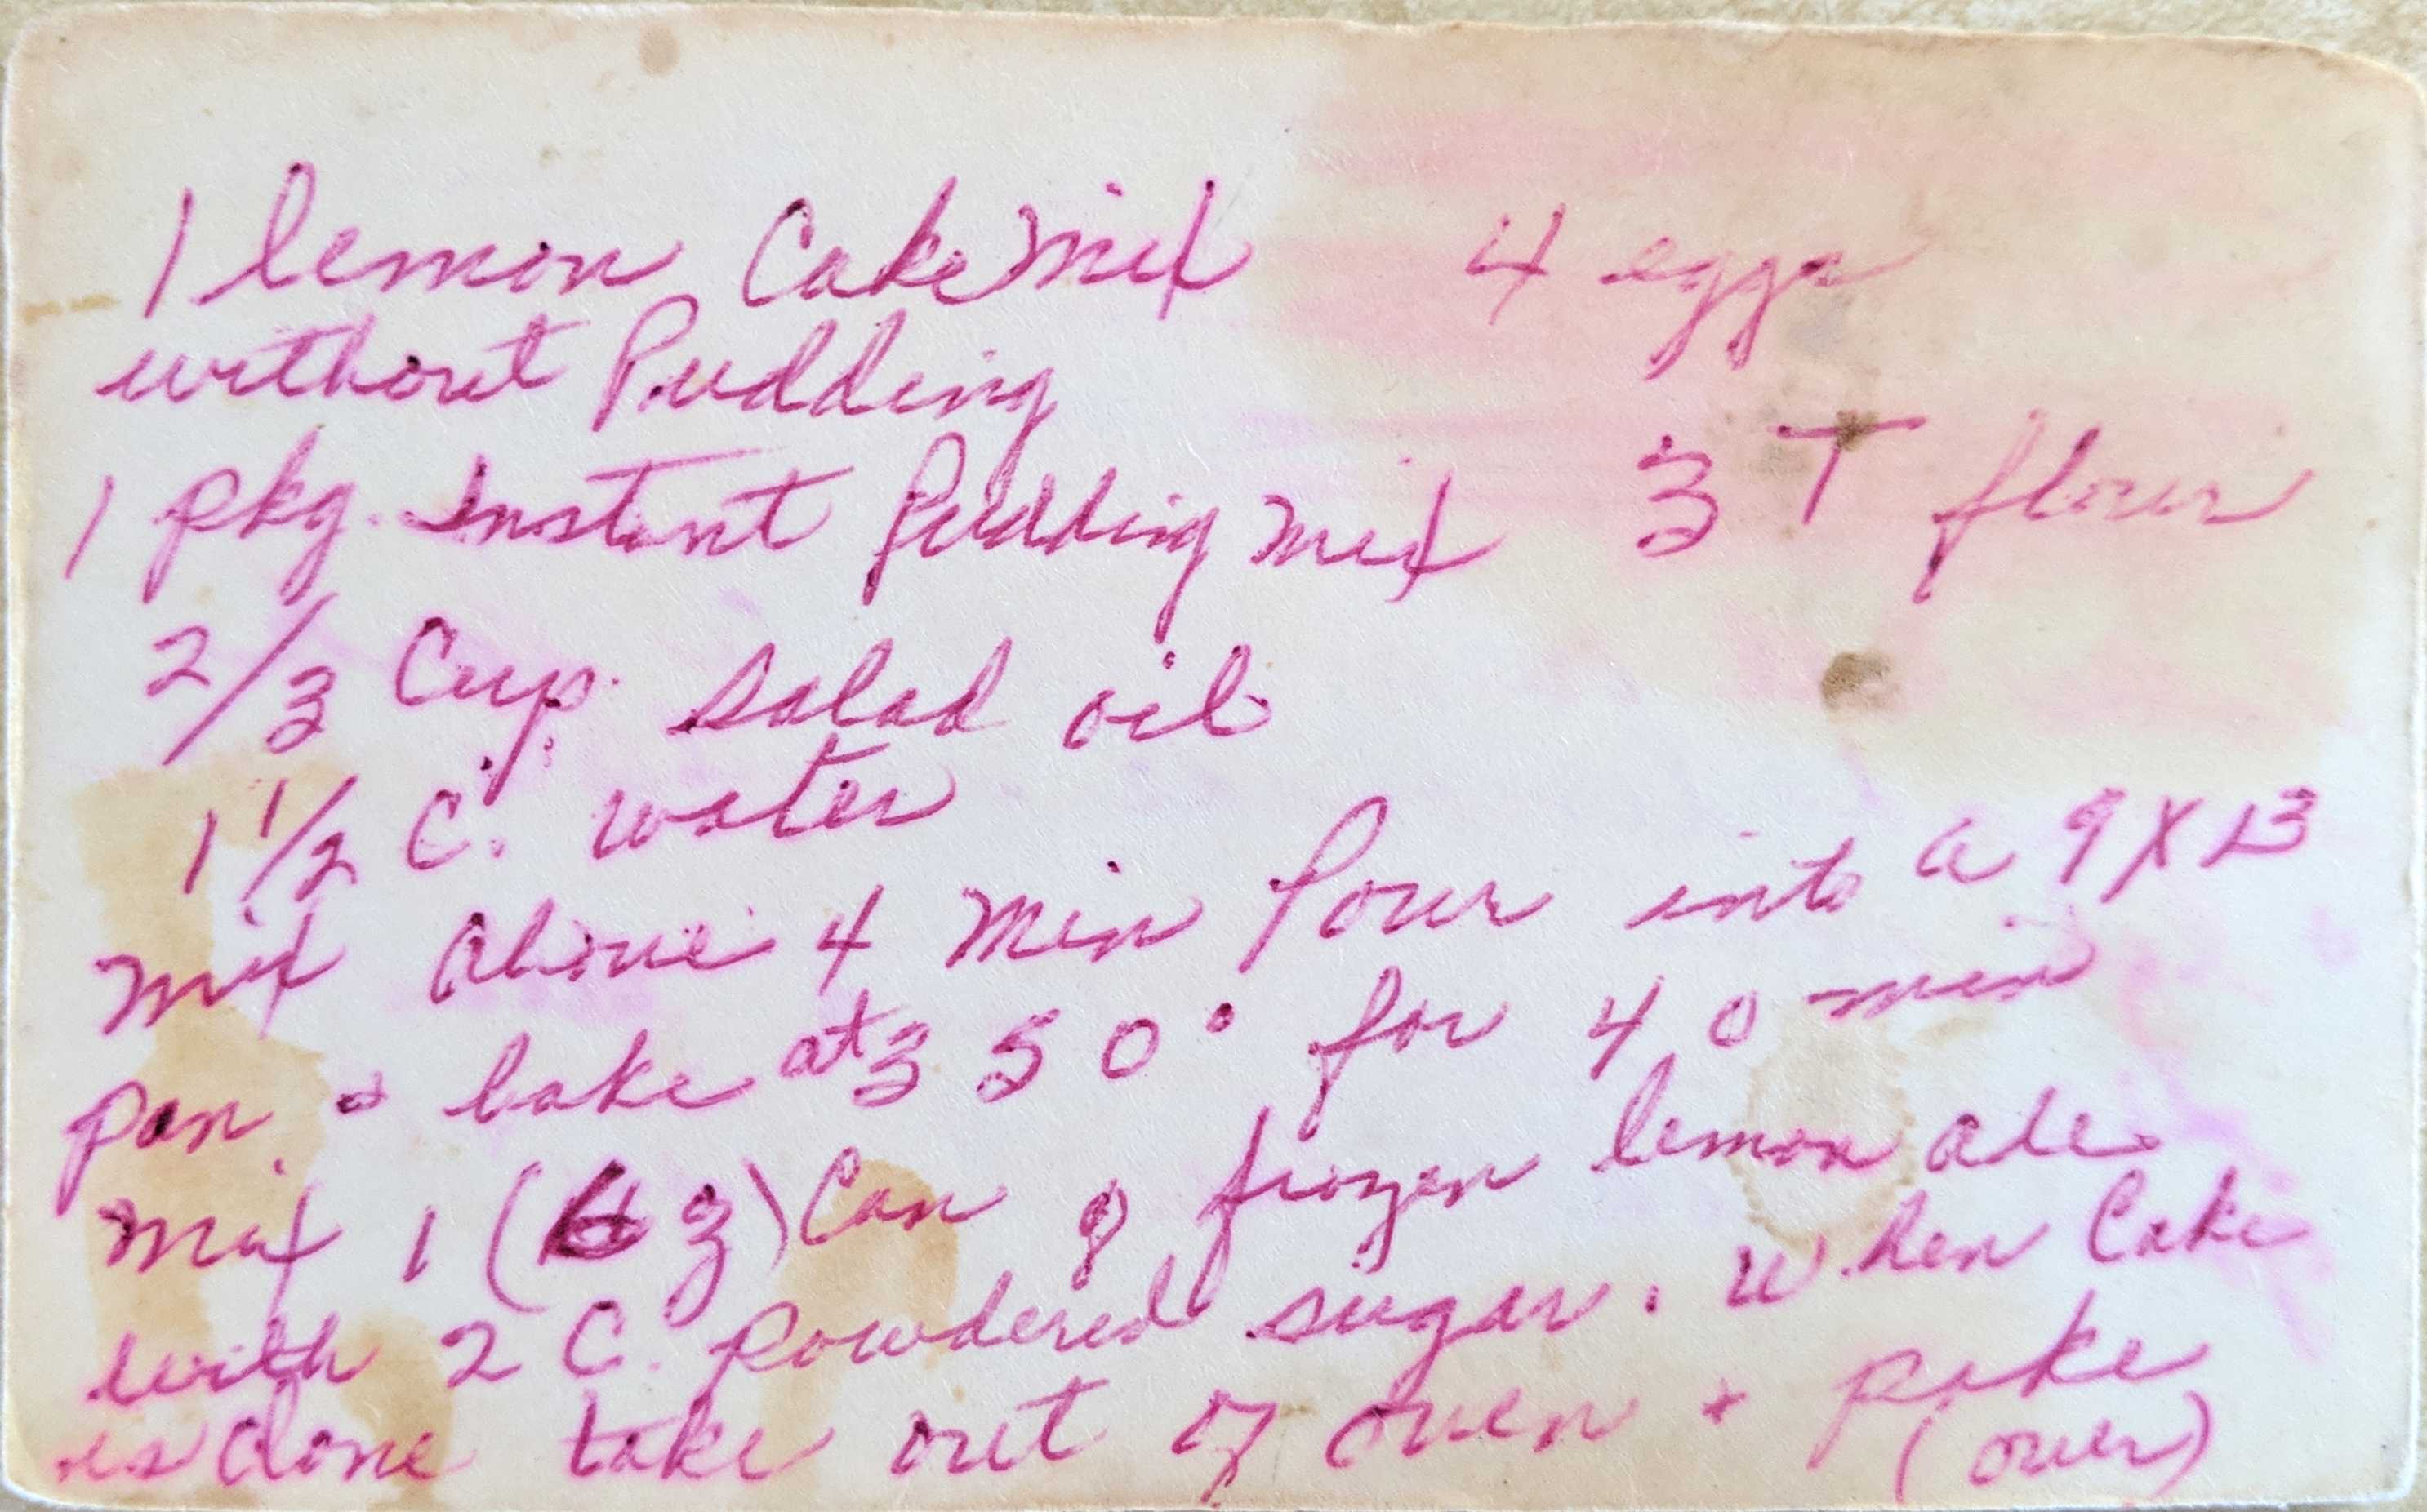 1 lemon Cake Mix 4 eggs
without Pudding
1 pkg. Instant Pudding mix 3 T flour
2/3 Cup salad oil
1 1/2 C. water
mix above 4 Min Pour into a 9X13
pan + bake at 350° for 40 min
Mix 1 (6 z) Can of frozen lemon ade
with 2 C. Powdered sugar. When Cake
is done take out of oven + poke
(over)